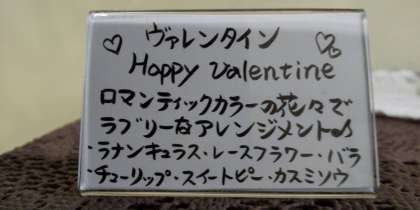 ♡ ヴァレンタイン ♡
Happy Valentine
ロマンティックカラーの花々で
ラブリーなアレンジメント♪
・ラナンキュラス・レースフラワー・バラ
・チューリップ・スイートピー・カスミソウ